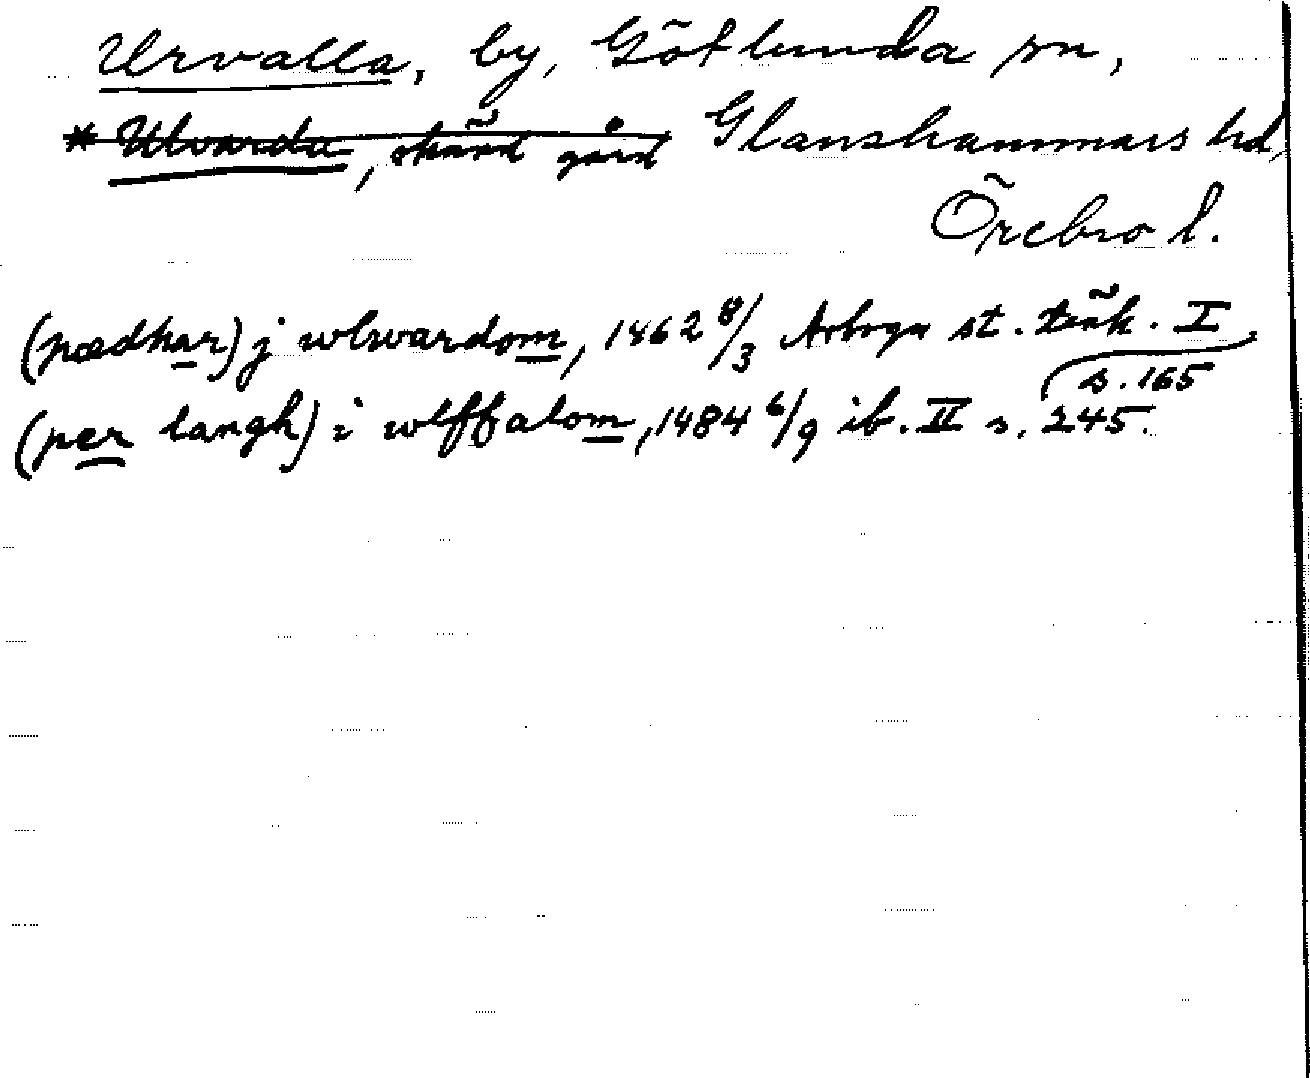 Urvalla, by, Götlunda sn,
* Ulvarda, okänd gård Glanshammars hd,
Örebro l.
(pædhar) j wlwardom, 1462 8/3 Arboga st. tänk. I
s. 165
(per langh) i wlffalom, 1484 6/9 ib. II s. 245.